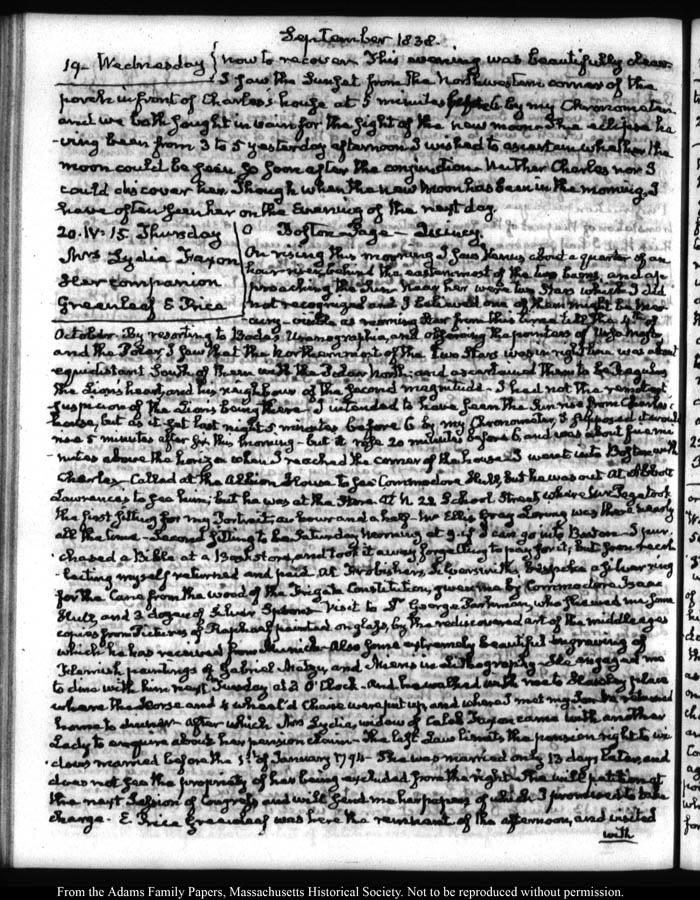 September 1838.
19. Wednesday { how to recover. This evening was beautifully clear.
I saw the Sunset from the Northwestern corner of the
porch in front of Charles's house at 5 minutes before 6 by my Chronometer
and we both sought in vain for the sight of the new moon. The eclipse ha
-ving been from 3 to 5 yesterday afternoon I wished to ascertain whether the
moon could be seen so soon after the conjunction. Neither Charles nor I
could discover her, though when the new Moon has been in the morning, I
have often seen her on the Evening of the next day.
20. IV: 15. Thursday
Mrs Lydia Faxon
Her companion
Greenleaf E Price
Boston Page — Quincy.
On rising this morning I saw Venus about a quarter of an
hour risen, behind the easternmost of the two barns, and ap
proaching the Sun. Near her were two Stars which I did
not recognize and I believed one of them might be Mer
cury - visible as morning Star from this time till the 4th of
October. By resorting to Bode's Uranographia, and observing the pointers of Ursa Major
and the Polar I saw that the Northernmost of the two Stars was in right line was about
equidistant South of them with the Polar North; and ascertained them to be Regulus
the Lion's heart, and his neighbour of the second magnitude. I had not the remotest
suspicion of the Lion's being there. I intended to have seen the Sun rise from Charles's
house, but as it set last night 5 minutes before 6 by my Chronometer, I supposed it would
rise 5 minutes after six this morning - but it rose 20 minutes before 6 and was about five mi
-nutes above the horizon when I reached the corner of the house. I went into Boston with
Charles. Called at the Albion House to see Commodore Hull, but he was out. At Abbott
Lawrence's to see him; but he was at the Store. At N. 22 School Street where Mr Page took
the first sitting for my Portrait, an hour and a half. Mr Ellis Gray Loring was there nearly
all the time. Second sitting to be Saturday Morning at 9. if I can go into Boston. I pur
chased a Bible at a Bookstore, and took it away forgetting to pay for it; but soon recol
-lecting myself returned and paid. At Frobisher's, Silversmith bespoke a Silver ring
for the Cane from the wood of the Frigate Constitution, given me by Commodore Isaac
Hull, and 2 dozen of Silver Spoons. Visit to Dr George Parkman, who shewed me some
copies from Pictures of Raphael painted on glass, by the rediscovered art of the middle ages
which he has received from Munich. Also some extremely beautiful engraving of
Flemish paintings of Gabriel Metzu, and Mieris in Lithography. He engaged me
to dine with him next Tuesday at 2 O'Clock. And he walked with me to Hawley place
where the Horse and 4 wheel'd Chaise were put up, and where I met my Son. We returned
home to dinner. After which Mrs Lydia, widow of Caleb Faxon came with another
Lady to enquire about her pension claim. The last Law limits the pension right to wi
dows married before the 1st of January 1794. She was married only 13 days later, and
does not see the propriety of her being excluded from the right. She will petition at
the next Session of Congress and will send me her papers of which I promised to take
charge. E. Price Greenleaf was here the remnant of the afternoon, and visited
with
From the Adams Family Papers, Massachusetts Historical Society. Not to be reproduced without permission.